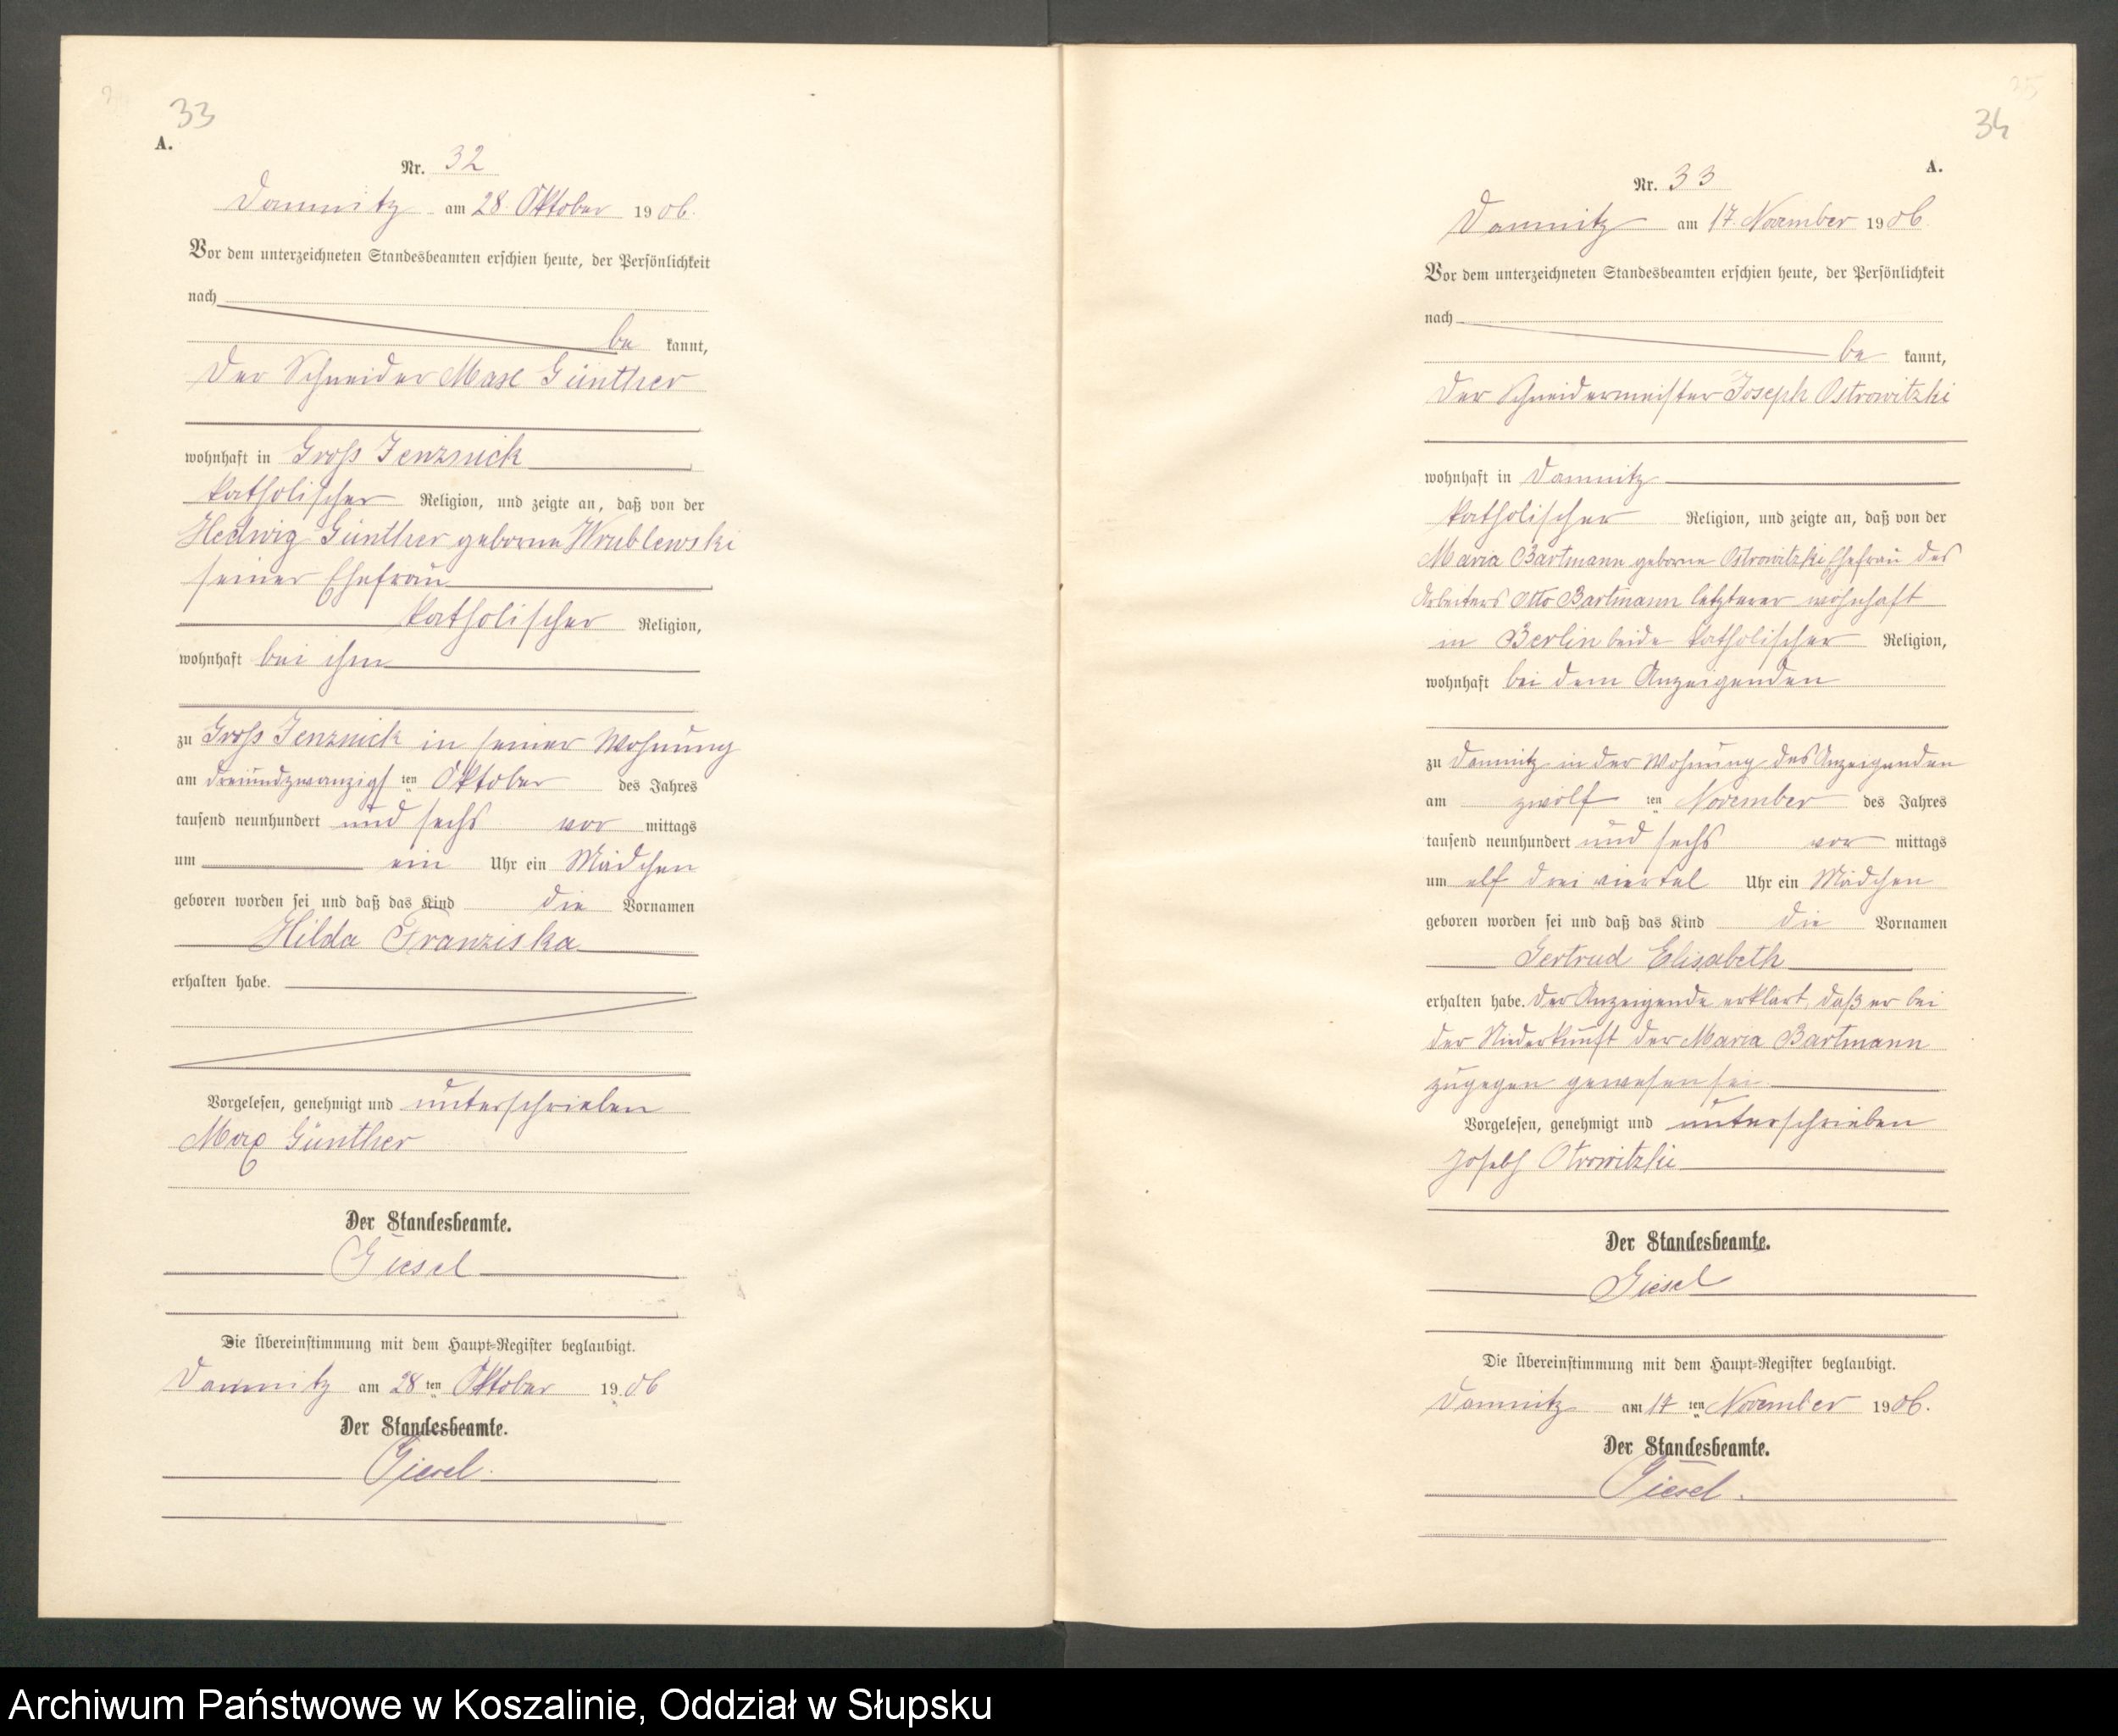 33
A.
Nr. 32
Damnitz am 28. Oktober 1906.
Vor dem unterzeichneten Standesbeamten erschien heute, der Persönlichkeit
nach
be kannt,
der Schneider Max Günther
wohnhaft in Groß Jenznick
katholischer Religion, und zeigte an, daß von der
Hedwig Günther geborne Wrublewski
seiner Ehefrau
katholischer Religion,
wohnhaft bei ihm
zu Groß Jenznick in seiner Wohnung
am dreiundzwanzigsten Oktober des Jahres
tausend neunhundert und sechs vor mittags
um ein Uhr ein Mädchen
geboren worden sei und daß das Kind die Vornamen
Hilda Franziska
erhalten habe.
Vorgelesen, genehmigt und unterschrieben
Max Günther
Der Standesbeamte.
Giesel
Die Übereinstimmung mit dem Haupt-Register beglaubigt.
Damnitz am 28ten Oktober 1906
Der Standesbeamte.
Giesel.
34
A.
Nr. 33
Damnitz am 17. November 1906.
Vor dem unterzeichneten Standesbeamten erschien heute, der Persönlichkeit
nach
be kannt,
der Schneidermeister Joseph Ostrowitzki
wohnhaft in Damnitz
katholischer Religion, und zeigte an, daß von der
Maria Bartmann geborne Ostrowitzki Ehefrau des
Arbeiters Otto Bartmann letzterer wohnhaft
in Berlin beide katholischer Religion,
wohnhaft bei dem Anzeigenden
zu Damnitz in der Wohnung des Anzeigenden
am zwölften November des Jahres
tausend neunhundert und sechs vor mittags
um elf dreiviertel Uhr ein Mädchen
geboren worden sei und daß das Kind die Vornamen
Gertrud Elisabeth
erhalten habe. Der Anzeigende erklärt, daß er bei
der Niederkunft der Maria Bartmann
zugegen gewesen sei.
Vorgelesen, genehmigt und unterschrieben
Joseph Otrowitzki
Der Standesbeamte.
Giesel
Die Übereinstimmung mit dem Haupt-Register beglaubigt.
Damnitz am 17ten November 1906.
Der Standesbeamte.
Giesel.
Archiwum Państwowe w Koszalinie, Oddział w Słupsku